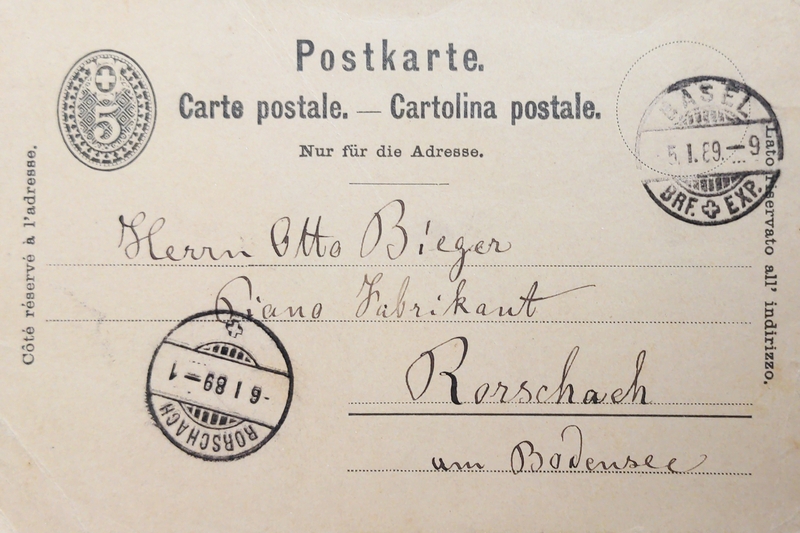 Postkarte.
5
Carte postale. — Cartolina postale.
Nur für die Adresse.
Côté réservé à l'adresse.
Lato riservato all' indirizzo.
BASEL
5. I. 89. – 9
BRF. EXP.
Herrn Otto Bieger
Piano Fabrikant
Rorschach
am Bodensee
RORSCHACH
-6 I 89 – 1